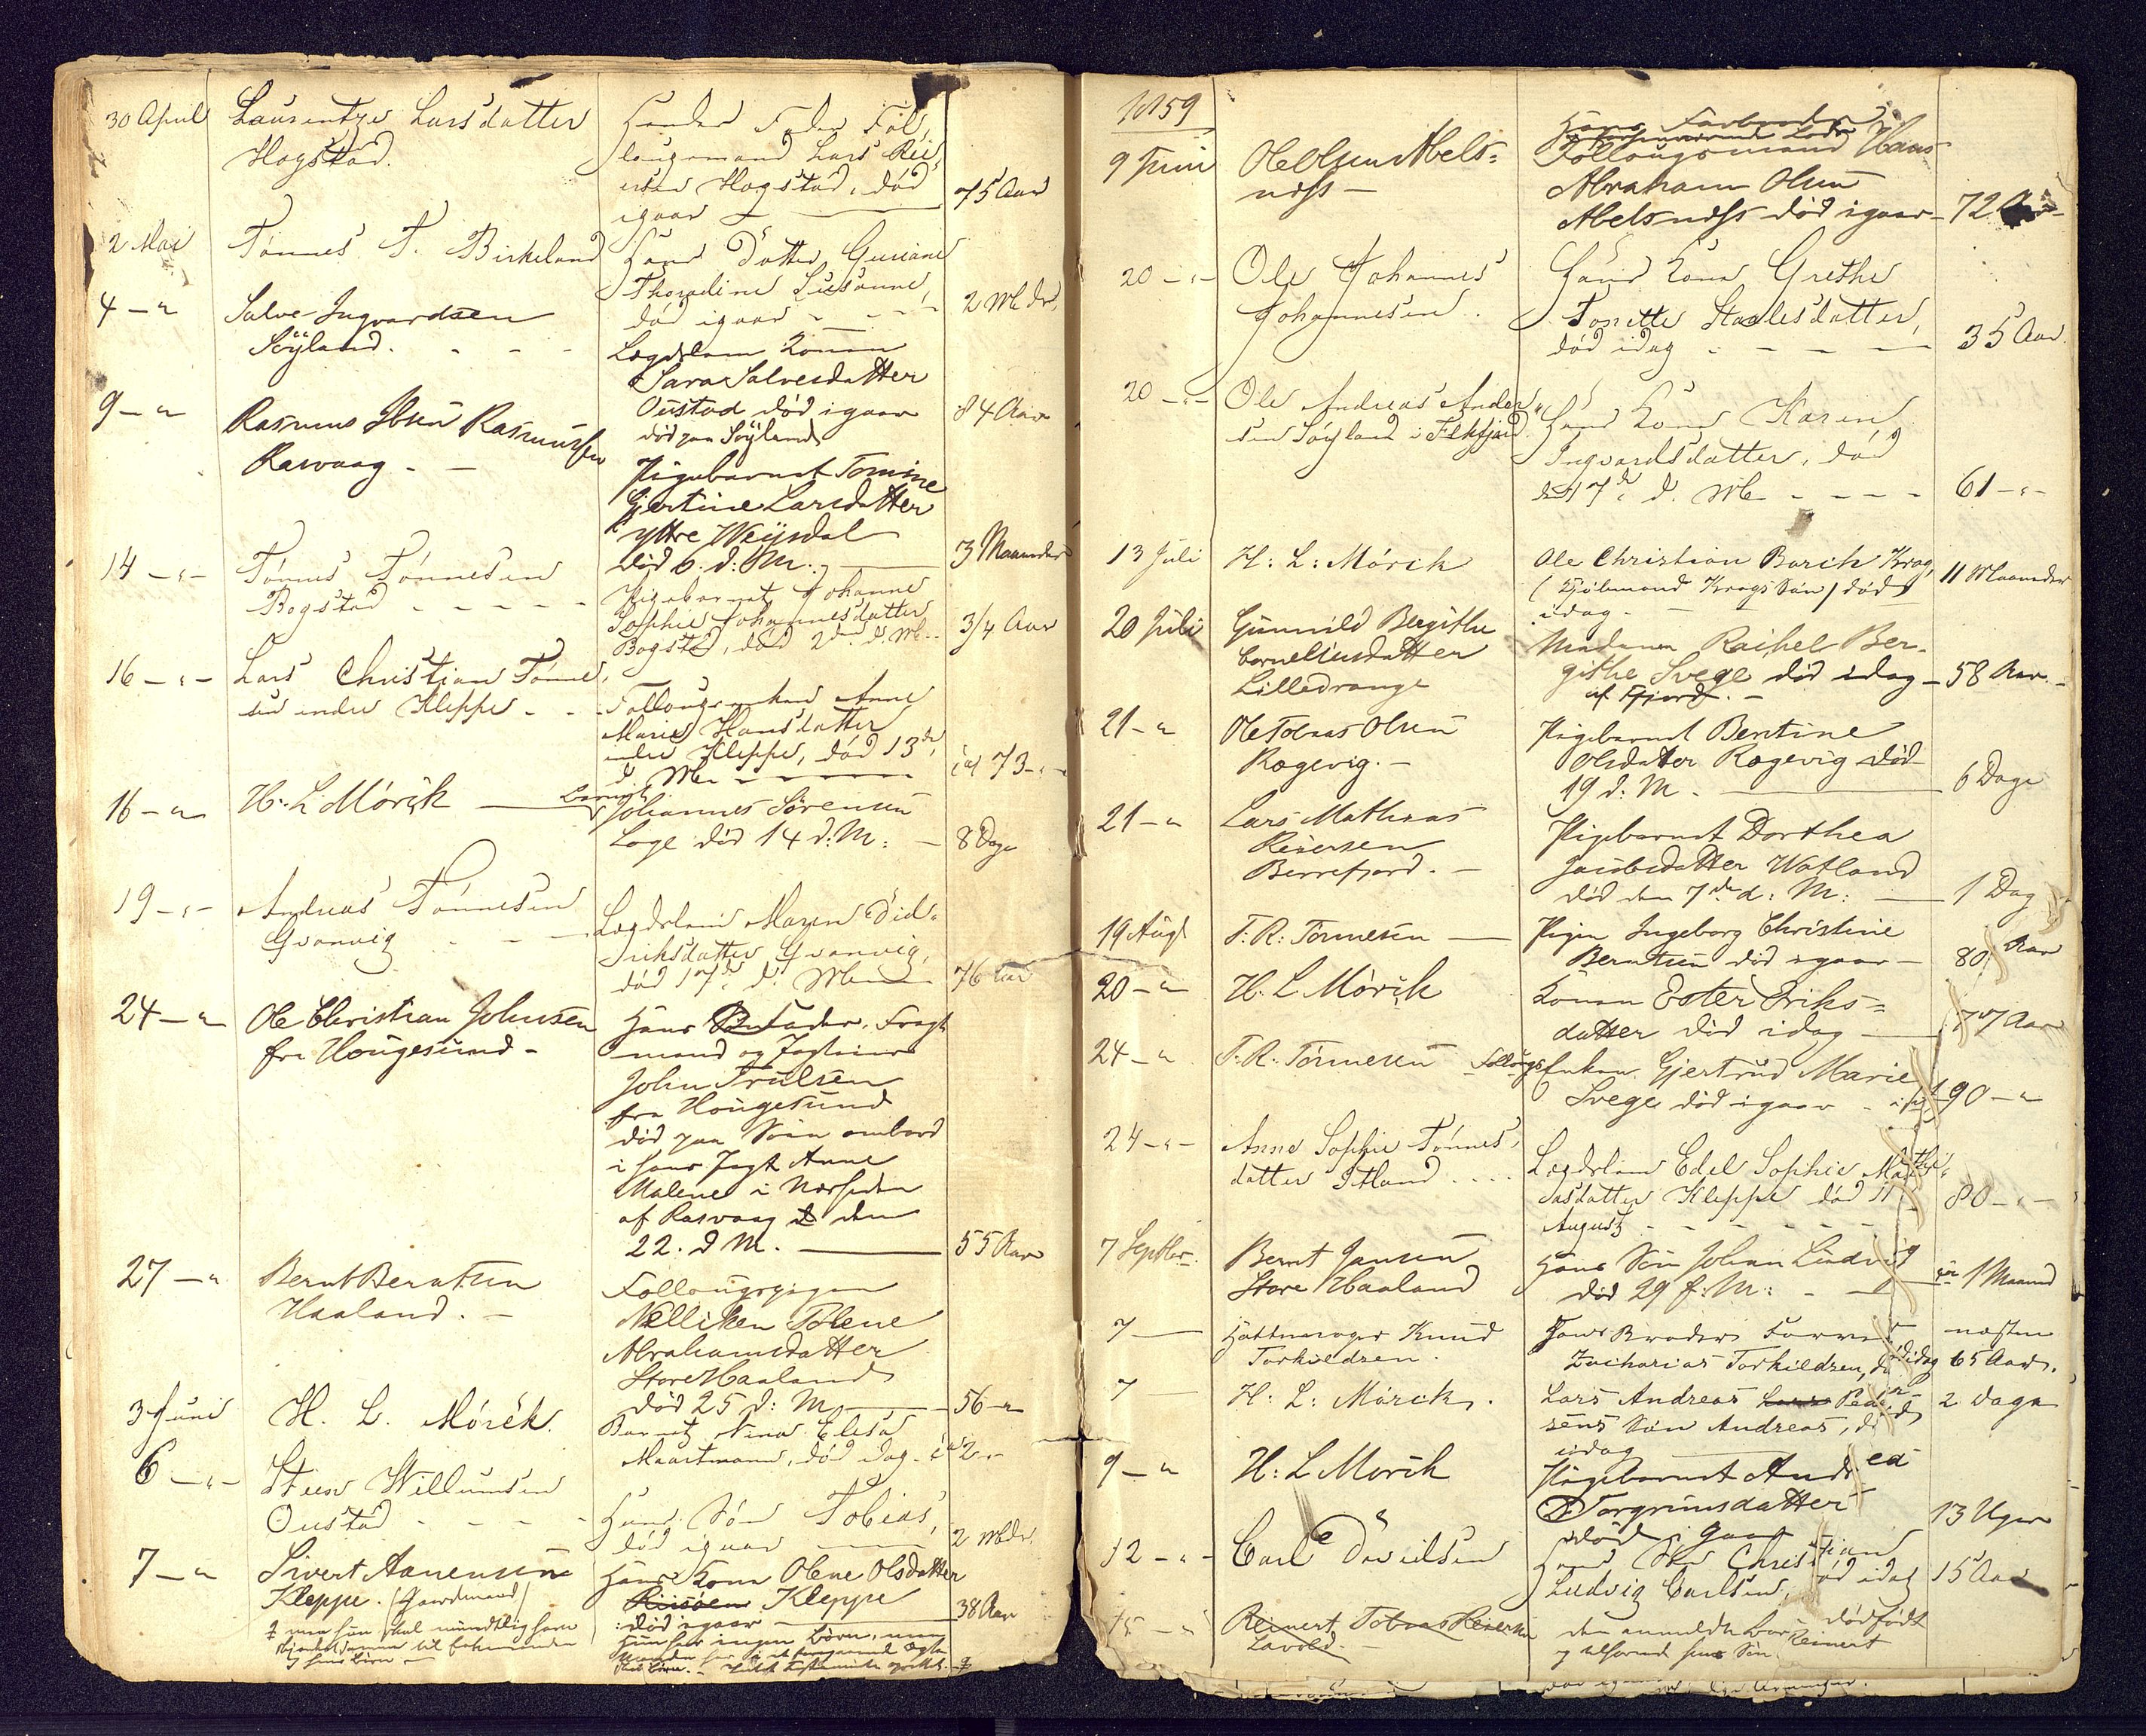 30 April Laurentze Larsdatter
Hogstad.
Hendes Fader Fol,
lougsmand Lars Rei,
ersen Hogstad, død
igaar — 75 Aar
2 Mai Tønnes T. Birkeland
Hans Datter Guriane
Thoradine Susanne,
død igaar - - - 2 Mdr.
4 — " Salve Ingvardsen
Söyland. - - -
Lægdslem Konen
Sara Salvesdatter
Oustad død igaar 84 Aar
død paa Söyland
9 — " Rasmus Ibsen Rasmussen
Rasvaag. —
Pigebarnet Tomine
Gjertine Larsdatter
yttre Weisdal
død 6. d: M: — 3 Maaneder
14 — " — Tønnes Tønnesen
Bogstad - - - - -
Pigebarnet Johanne
Sophie Johannesdatter
Bogstad, død 2den d. M. - 3/4 Aar
16 — " — Lars Christian Tønne,
sen indre Kleppe - - -
Follougsenken Anne
Marie Hansdatter
indre Kleppe, død 13de
d. M. - - - - 73 - " -
16 — " H: L Mörck — Barnet
Johannes Sörensen
Loge død 14 d: M: — 8 Dage
19 — " — Andreas Tønnesen
Gvanvig - - -
Lægdslem Maren Did,
riksdatter Gvanvig,
død 17de d. M. — 76 Aar
24 — " Ole Christian Johnsen
fra Hougesund -
Hans Fader, Fragt
mand og Jagteier
John Trulsen
fra Hougesund
død paa Söen ombord
i hans Jagt Anne
Malene i Nærheden
af Rasvaag den
22. d M. — 55 Aar
27 — " Bernt Berntsen
Haaland. —
Follougspigen
Nelliken Tolene
Abrahamsdatter
Store Haaland
død 25 d: M — 56 - "
3 Juni H. L. Mörck.
Barnet Nina Elisa
Maartmann, død idag. 2 -
6 — " — Steen Willumsen
Oustad - - - -
Hans Sön Tobias,
død igaar — 2 Mdr.
7 — " Sivert Aanensen
Kleppe. (Gaardmand)
Hans Kone Olene Olsdatter
Kleppe
død igaar — 38 Aar
hun har ingen Börn, men
1859
9 Juni Ole Olsen Abels=
næss —
Hans Farbroder
Follougsmand Hans
Abraham Olsen
Abelsnæss død igaar - 72 Aar
20 — " — Ole Johannes
Johannesen.
Hans Kone Grethe
Tonette Staalesdatter,
død idag - - - — 35 Aar.
20 — " — Ole Andreas Ander,
sen Söyland i Flekfjord.
Hans Kone Karen
Ingvardsdatter, død
den 17de d. M. - - - - 61 — " —
13 Juli H: L: Mörck
Ole Christian Borch Krog,
(Kjöbmand Krogs Sön) død
idag. — 11 Maaneder
20 Juli Gunnild Bergithe
Corneliusdatter
Lilledrange
Madame Rachel Ber-
githe Svege død idag - 58 Aar. -
af Fjord. -
21 — " Ole Tobias Olsen
Rægevig. —
Pigebarnet Bentine
Olsdatter Rægevig død
19 d: M. — 6 Dage
21 — " Lars Mathias
Reiersen
Berrefjord. —
Pigebarnet Dorthea
Jacobsdatter Watland
død den 7de d: M: — 1 Dag
19 Augt T: R: Tönnesen —
Pigen Ingeborg Christine
Berntsen død igaar — 80 Aar
20 — " H. L Mörck
Konen Ester Eriks=
datter død idag — 77 Aar
24 — " T. R. Tönnesen Follougs
Enken Gjertrud Marie
Svege død igaar - 90 — "
24 — " — Anne Sophie Tønnes,
datter Itland . . . .
Lægdslem Edel Sophie Mathi,
asdatter Kleppe død 11
August - - - - - 80 — " —
7 Septbr. Bernt Jansen
Store Haaland
Hans Sön Johan Ludvig
død 29 f: M: - — 1 Maaned
7 — Hattemager Knud
Torkildsen.
Hans Broder
Zacharias Torkildsen, død idag
næsten
65 Aar.
7 — H: L: Mörck.
Lars Andreas Peder
sens Sön Andreas, død
idag 2 Dage
9 — " H: L Mörck
Pigebarnet Andrea
Torgrimsdatter
død igaar 13 Uger
12 — " — Carl Davidsen
Hans Sön Christian
Ludvig Carlsen, død idag 15 Aar
15 — " Reinert Tobias Reiersen
Lavold. —
den anmeldte var dødfødt
Reinert